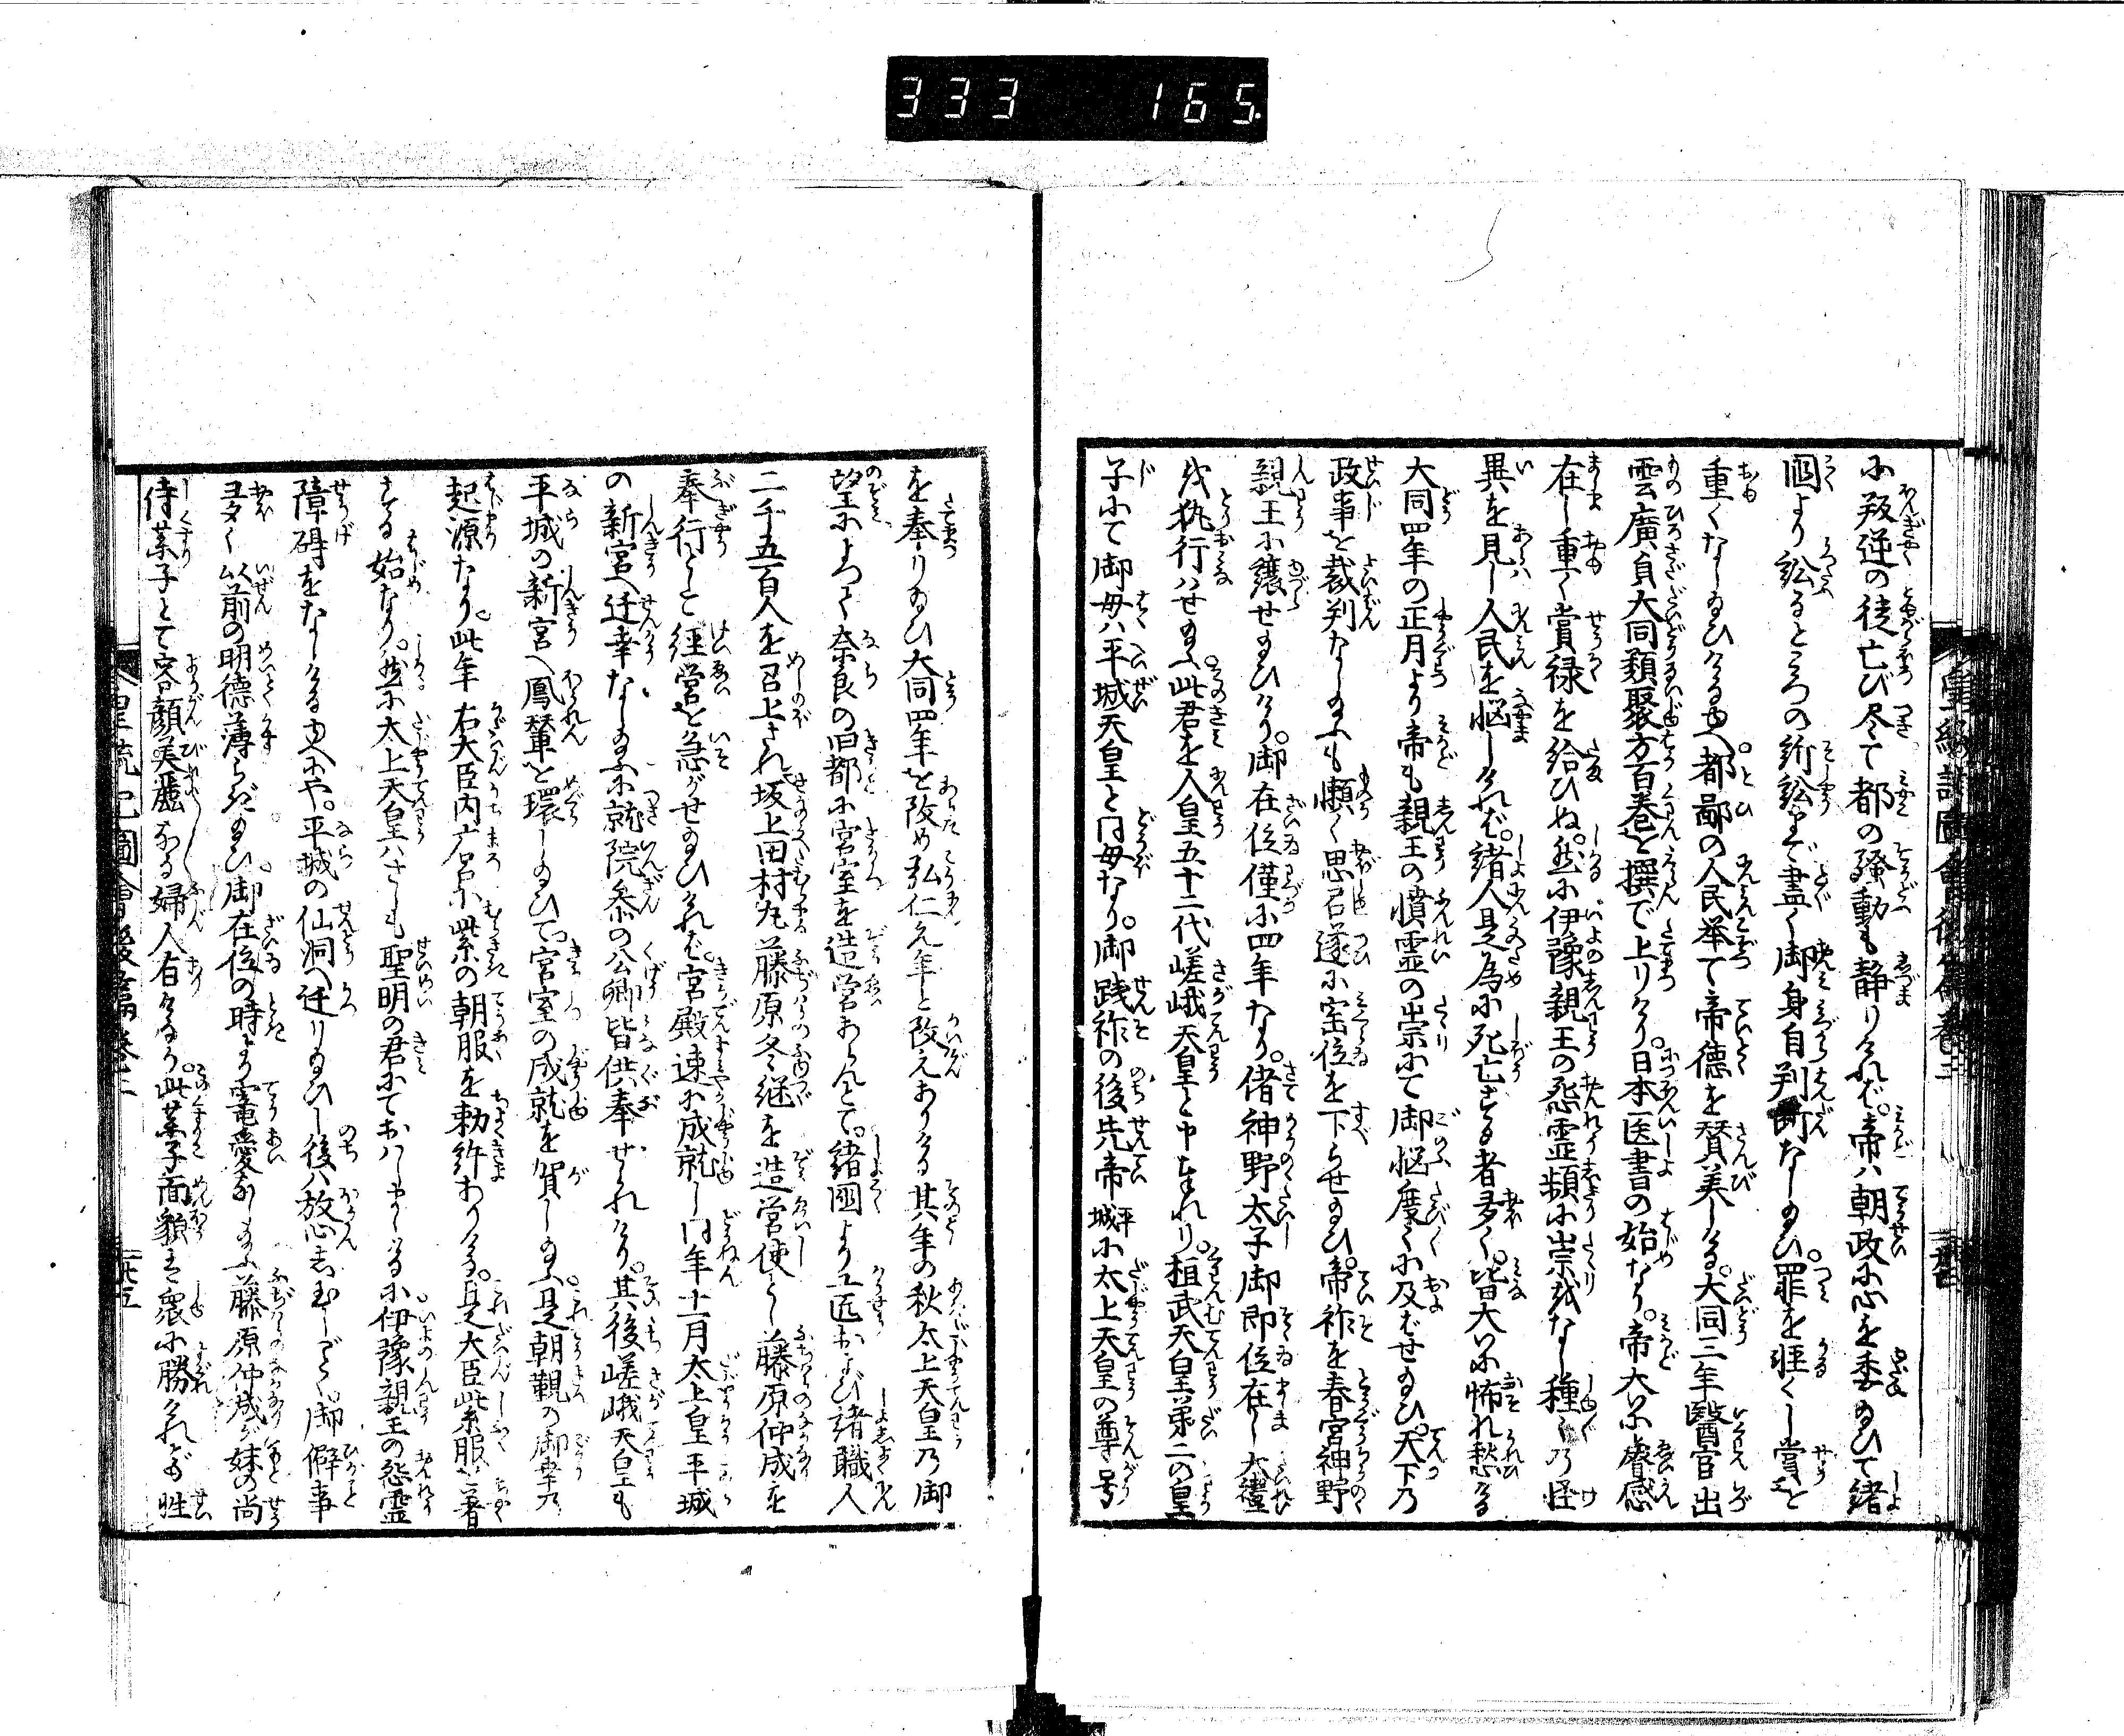 333 165
小叛逆の徒亡び尽て都の騒動も静りければ。帝ハ朝政に心を委ね給ひて諸
國より訟るところの訴訟まで盡く御身自判断なし給ひ。罪を軽くし賞を
重くなし給ひける由へ。都鄙の人民挙て帝徳を賛美しける。大同三年醫官出
雲廣貞大同類聚方百巻を撰で上りけり。日本医書の始なり。帝大に睿感
在し重く賞禄を給ひぬ。然に伊豫親王の怨霊頻に祟をなし種々乃怪
異を見し人民を悩しければ。諸人是為に死亡する者多く。皆大に怖れ愁ける
大同四年の正月より帝も親王の憤霊の祟にて御悩度々に及ばせ給ひ。天下乃
政事を裁判なし給ふも懶く思召遂に宝位を下らせ給ひ。帝祚を春宮神野
親王に譲せ給ひけり。御在位僅に四年なり。偖神野太子御即位在し大禮
を執行はせ給ふ。此君を人皇五十二代嵯峨天皇と申奉れり。桓武天皇第二の皇
子にて御母ハ平城天皇と同母なり。御践祚の後先帝平城に太上天皇の尊号
を奉り給ひ大同四年を改め弘仁元年と改元ありける其年の秋太上天皇乃御
望によつて奈良の旧都に宮室を造営あらんとて。諸國より工匠および諸職人
二千五百人を召上され坂上田村丸藤原冬継を造営使とし藤原仲成を
奉行として経営を急がせ給ひければ。宮殿速に成就し同年十二月太上皇平城
の新宮へ迁幸なし給ふに就院参の公卿皆供奉せられけり。其後嵯峨天皇も
平城の新宮へ鳳輦を環し給ひて。宮室の成就を賀し給ふ。是朝覲の御幸乃
起源なり。此年右大臣内麿に紫の朝服を勅許ありける。是大臣紫服を着
する始なり。然に太上天皇ハさしも聖明の君にておハしましけるに伊豫親王の怨霊
障碍をなしける由へにや。平城の仙洞へ迁り給ひし後ハ放心志玉しごとく。御僻事
多く以前の明徳薄らぎ給ひ。御在位の時より寵愛なし給ふ藤原仲成が妹の尚
侍薬子とて容顔美麗なる婦人有けるが。此薬子面貌こそ衆に勝けれども性
皇統記圖會後篇巻三